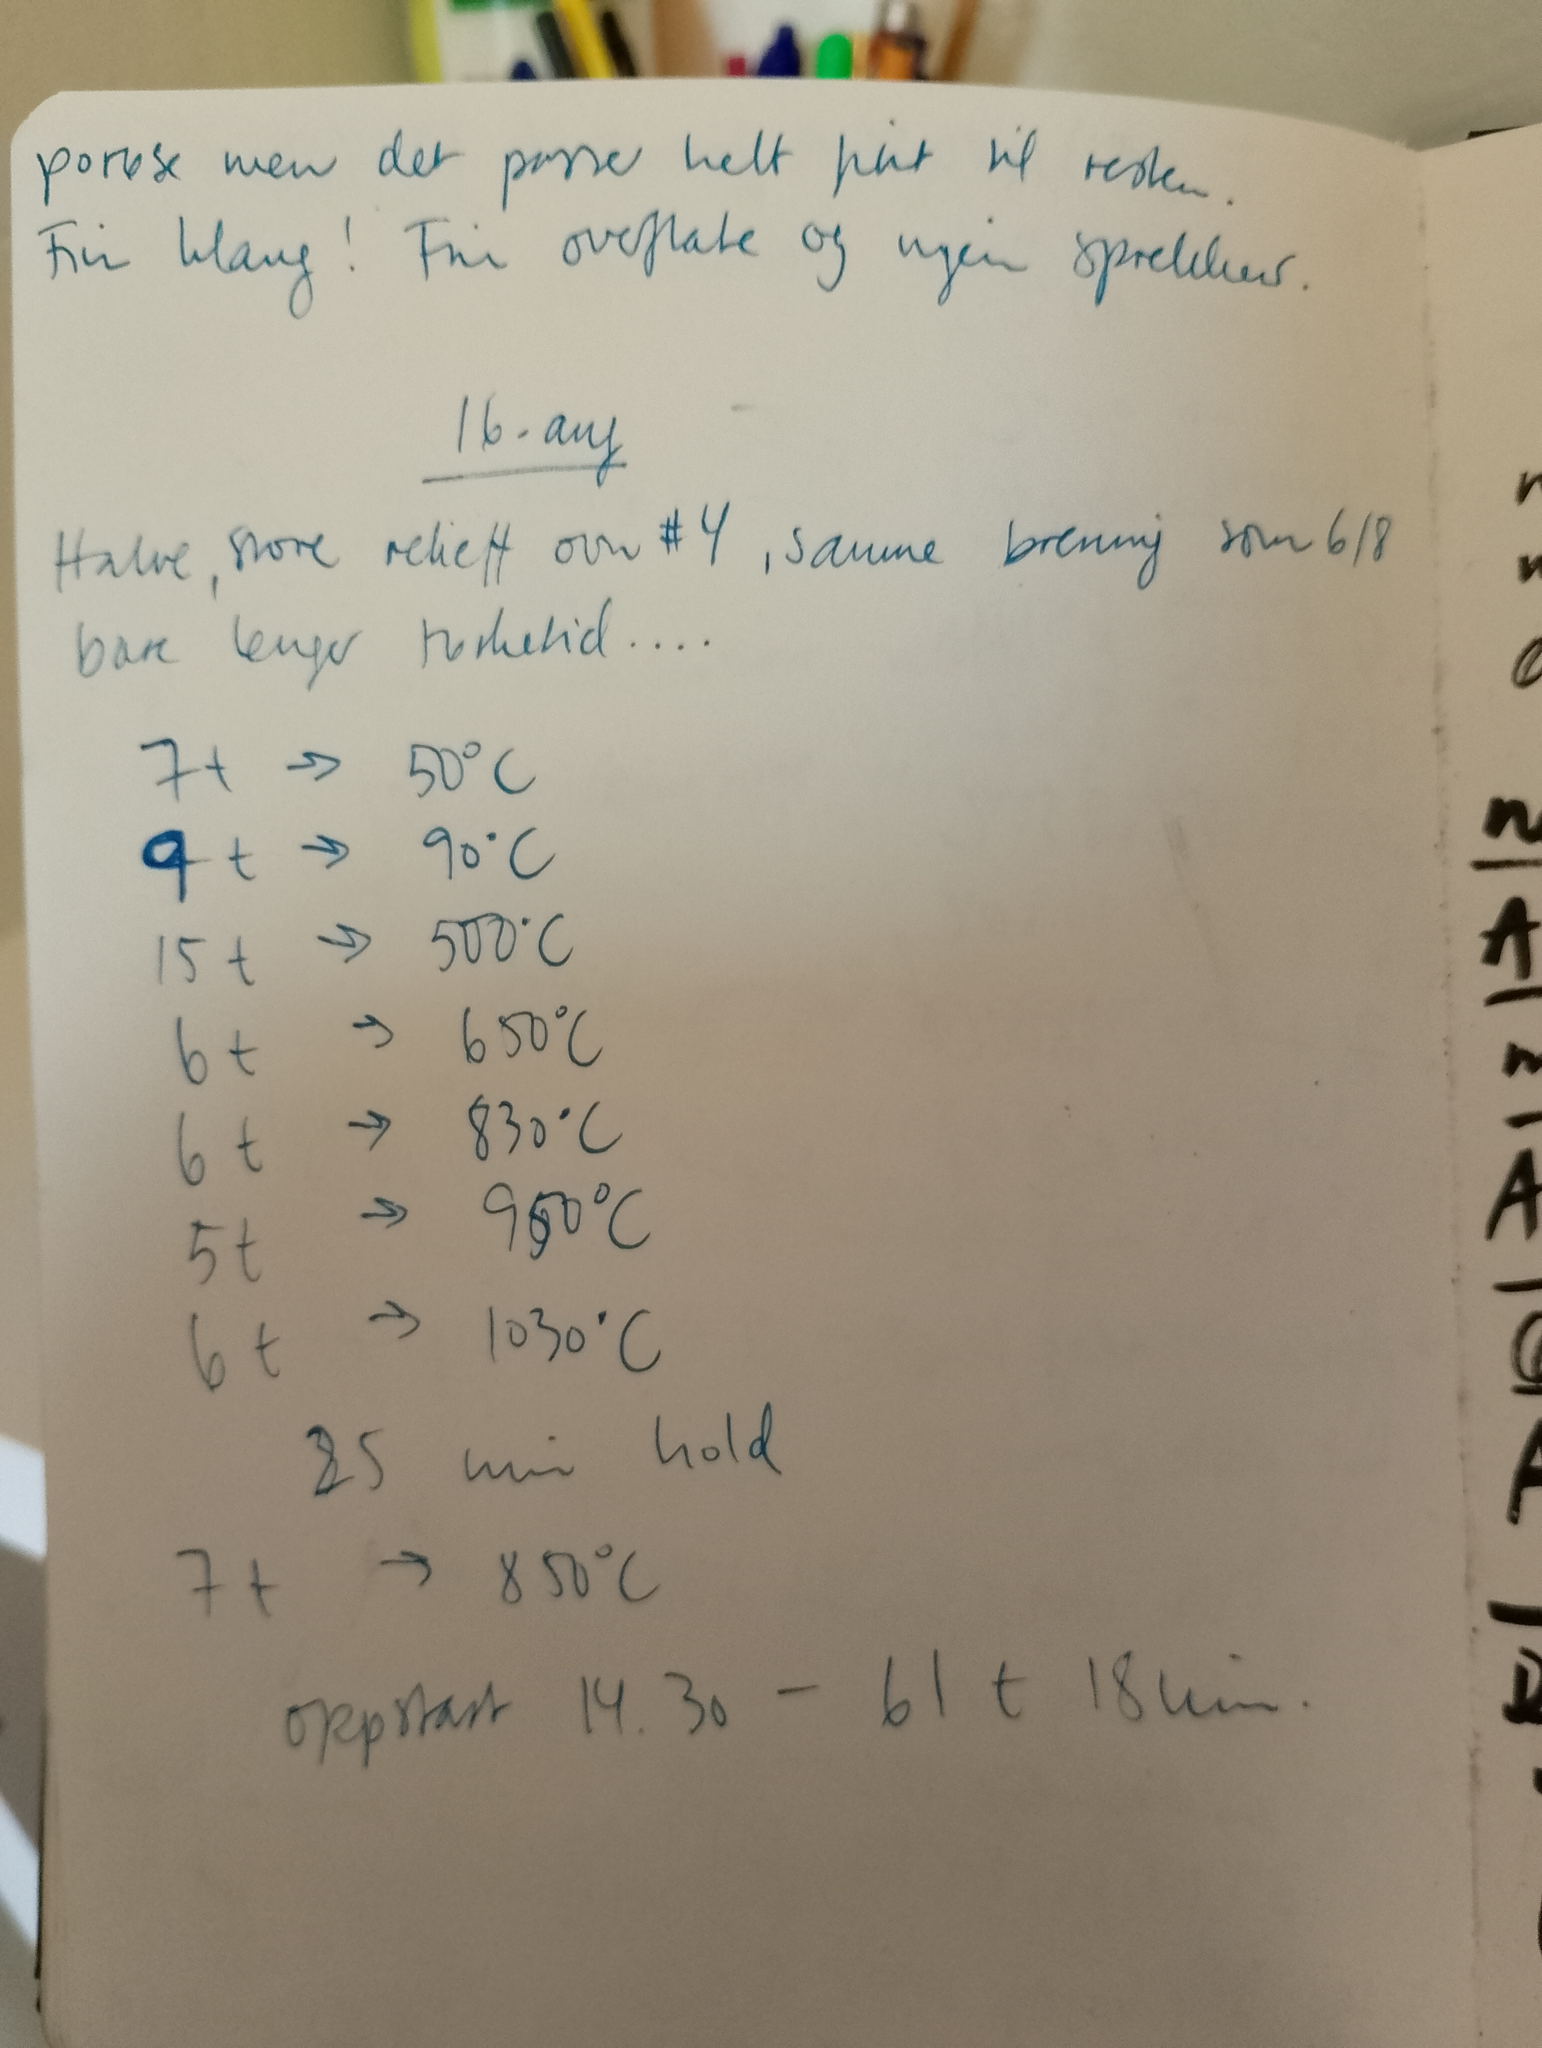 porøse men det passer helt fint til resten.
Fin klang! Fin overflate og ingen sprekker.
16. aug
Halve, store relieff ovn #4, samme brenning som 6/8
bare lenger tørketid....
7t → 50°C
9 t → 90°C
15 t → 500°C
6 t → 650°C
6 t → 830°C
5t → 950°C
6 t → 1030°C
25 min hold
7 t → 850°C
oppstart 14.30 - 61 t 18 min.